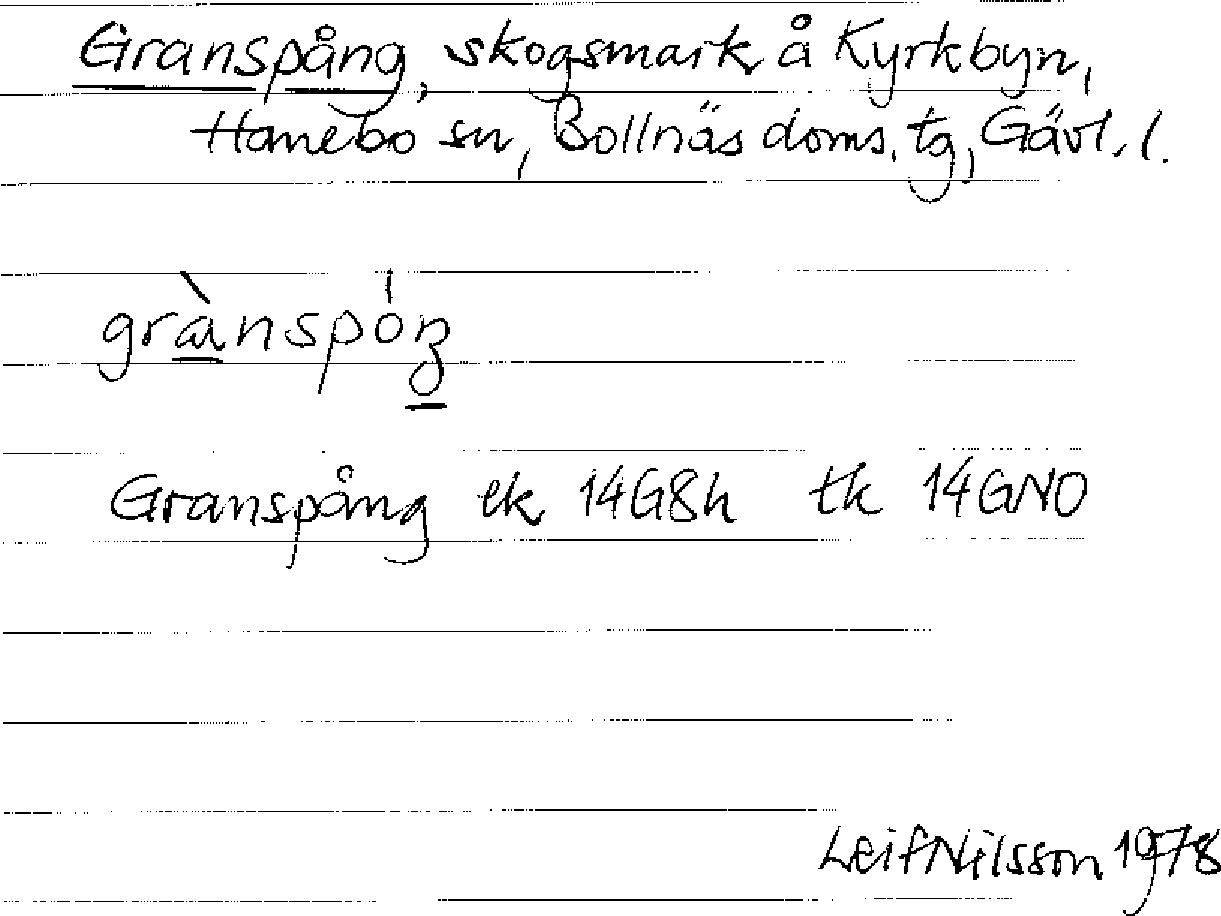 Granspång, skogsmark å Kyrkbyn,
Hanebo sn, Bollnäs doms. tg, Gävl. l.
grànspóŋ
Granspång ek 14G8h tk 14GNO
Leif Nilsson 1978